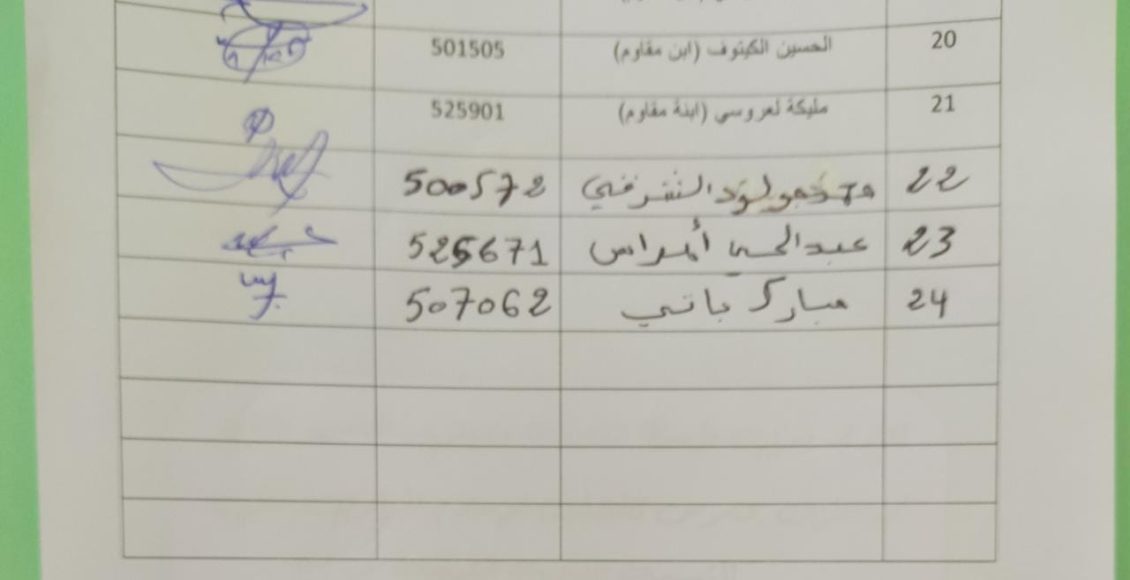 20 الحسين الكينوف (ابن مقاوم) 501505
21 مليكة لعروسي (ابنة مقاوم) 525901
22 500572
23 عبد الحي أمراس 525671
24 مبارك باني 507062